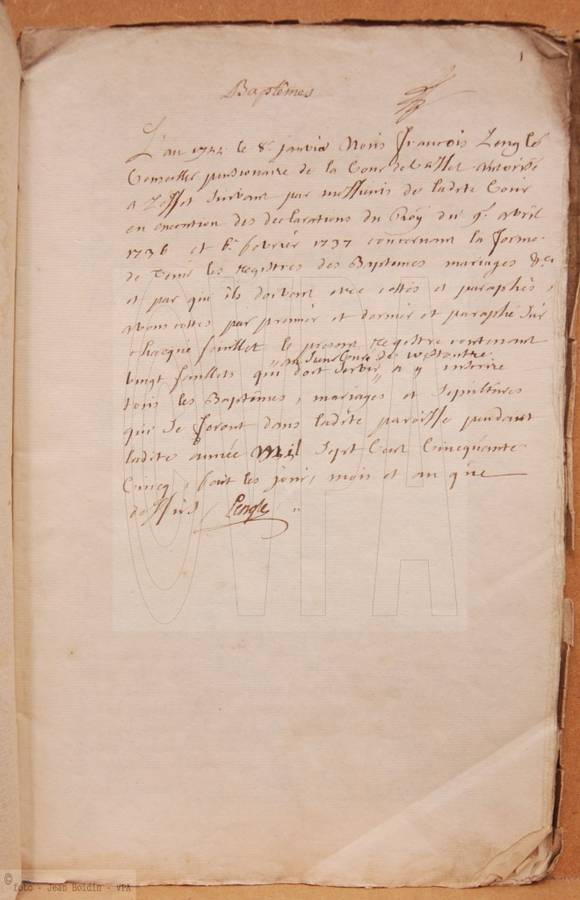 1
Baptêmes
L'an 1755 le 8e janvier Nous François Lenglé
Conseiller pensionaire de la Cour de Cassel autorisé
a L'effet suivant par messieurs de ladite Cour
en execution des declarations du Roy du 9e avril
1736 et fevrier 1737 concernant la forme
de tenir les registres des Baptemes mariages &a
et par qui ils doivent etre cottés et paraphés,
avons cottés par premier et dernier et paraphé sur
chacque feuillet le present registre contenant
vingt feuillets qui doit servir a y inscrire
au sieur Curé de
tous les Baptêmes, mariages et sepultures
qui se feront dans ladite paroisse pendant
ladite année Mil Sept Cent Cincquante
Cincq, fait les jour, mois et an que
dessus Lenglé
CVPA
© foto - Jean Boldin - VPA